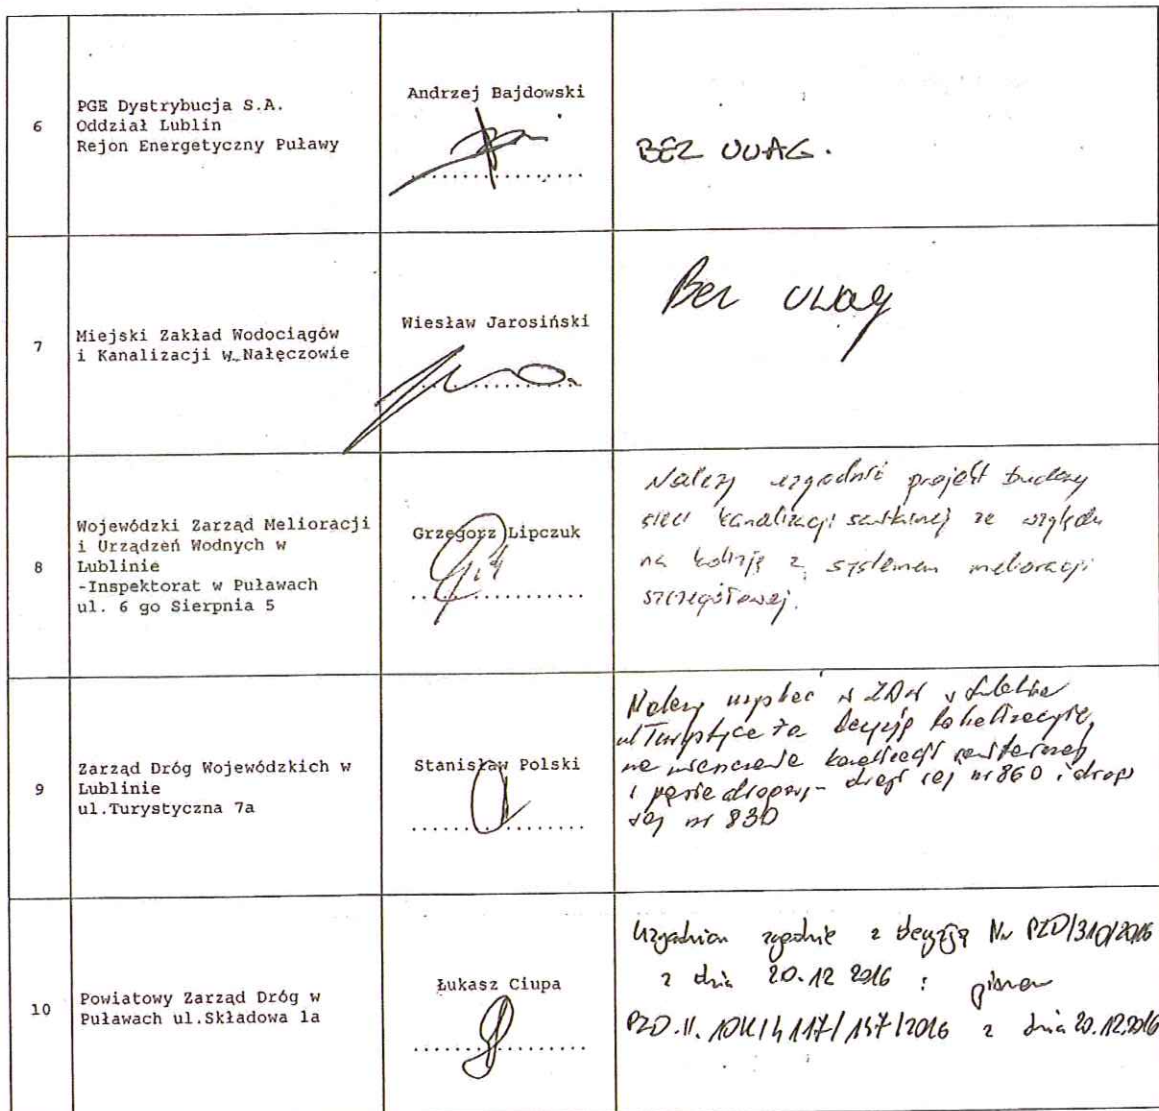 6
PGE Dystrybucja S.A.
Oddział Lublin
Rejon Energetyczny Puławy
Andrzej Bajdowski
BEZ UWAG.
7
Miejski Zakład Wodociągów
i Kanalizacji w Nałęczowie
Wiesław Jarosiński
Bez uwag
8
Wojewódzki Zarząd Melioracji
i Urządzeń Wodnych w
Lublinie
-Inspektorat w Puławach
ul. 6 go Sierpnia 5
Grzegorz Lipczuk
Należy uzgodnić projekt budowy
sieci kanalizacji sanitarnej ze względu
na kolizję z systemem melioracji
szczegółowej.
9
Zarząd Dróg Wojewódzkich w
Lublinie
ul.Turystyczna 7a
Stanisław Polski
Należy uzyskać w ZDW w Lublinie
ul Turystyczna 7a decyzję lokalizacyjną
na umieszczenie kanalizacji sanitarnej
w pasie drogowym drogi woj nr 860 i drogi
woj nr 830
10
Powiatowy Zarząd Dróg w
Puławach ul.Składowa 1a
Łukasz Ciupa
zgodnie z decyzją Nr PZD/310/2016
z dnia 20.12 2016 i pismem
z dnia 20.12.2016